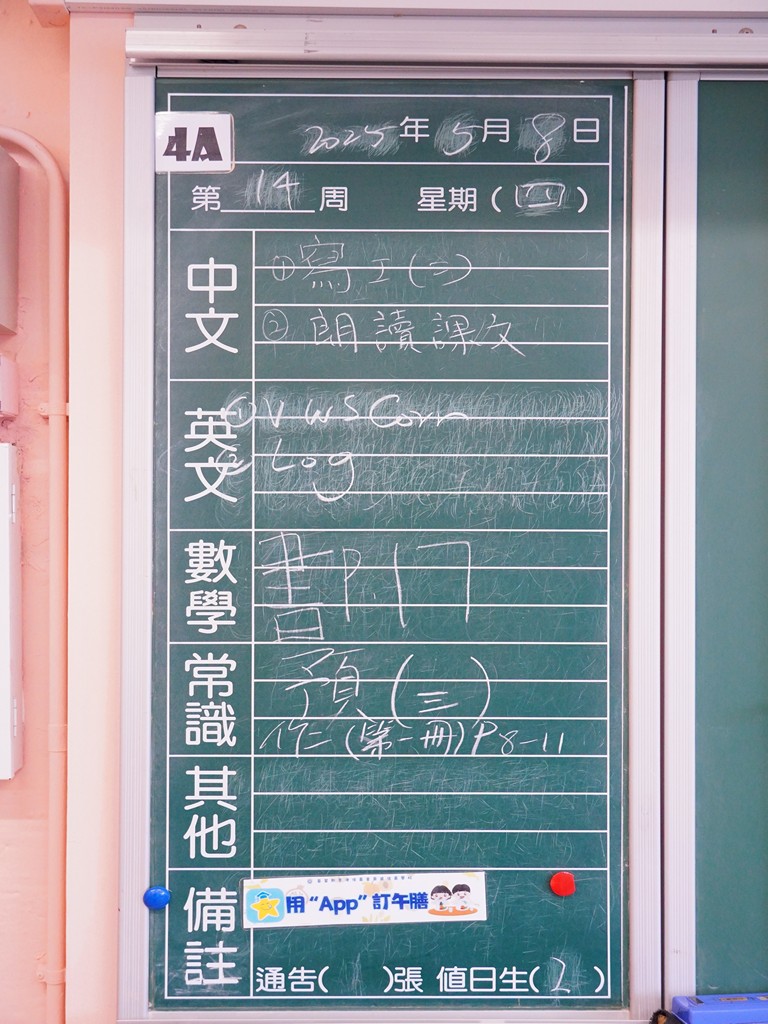 4A
2025年5月8日
第14周 星期(四)
中文
①寫工(二)
②朗讀課文
英文
①VWS Corr
② Log
數學
書P.117
常識
預(三)
作二(第一冊)P8-11
其他
備註
用“App”訂午膳
通告( )張 值日生(2)